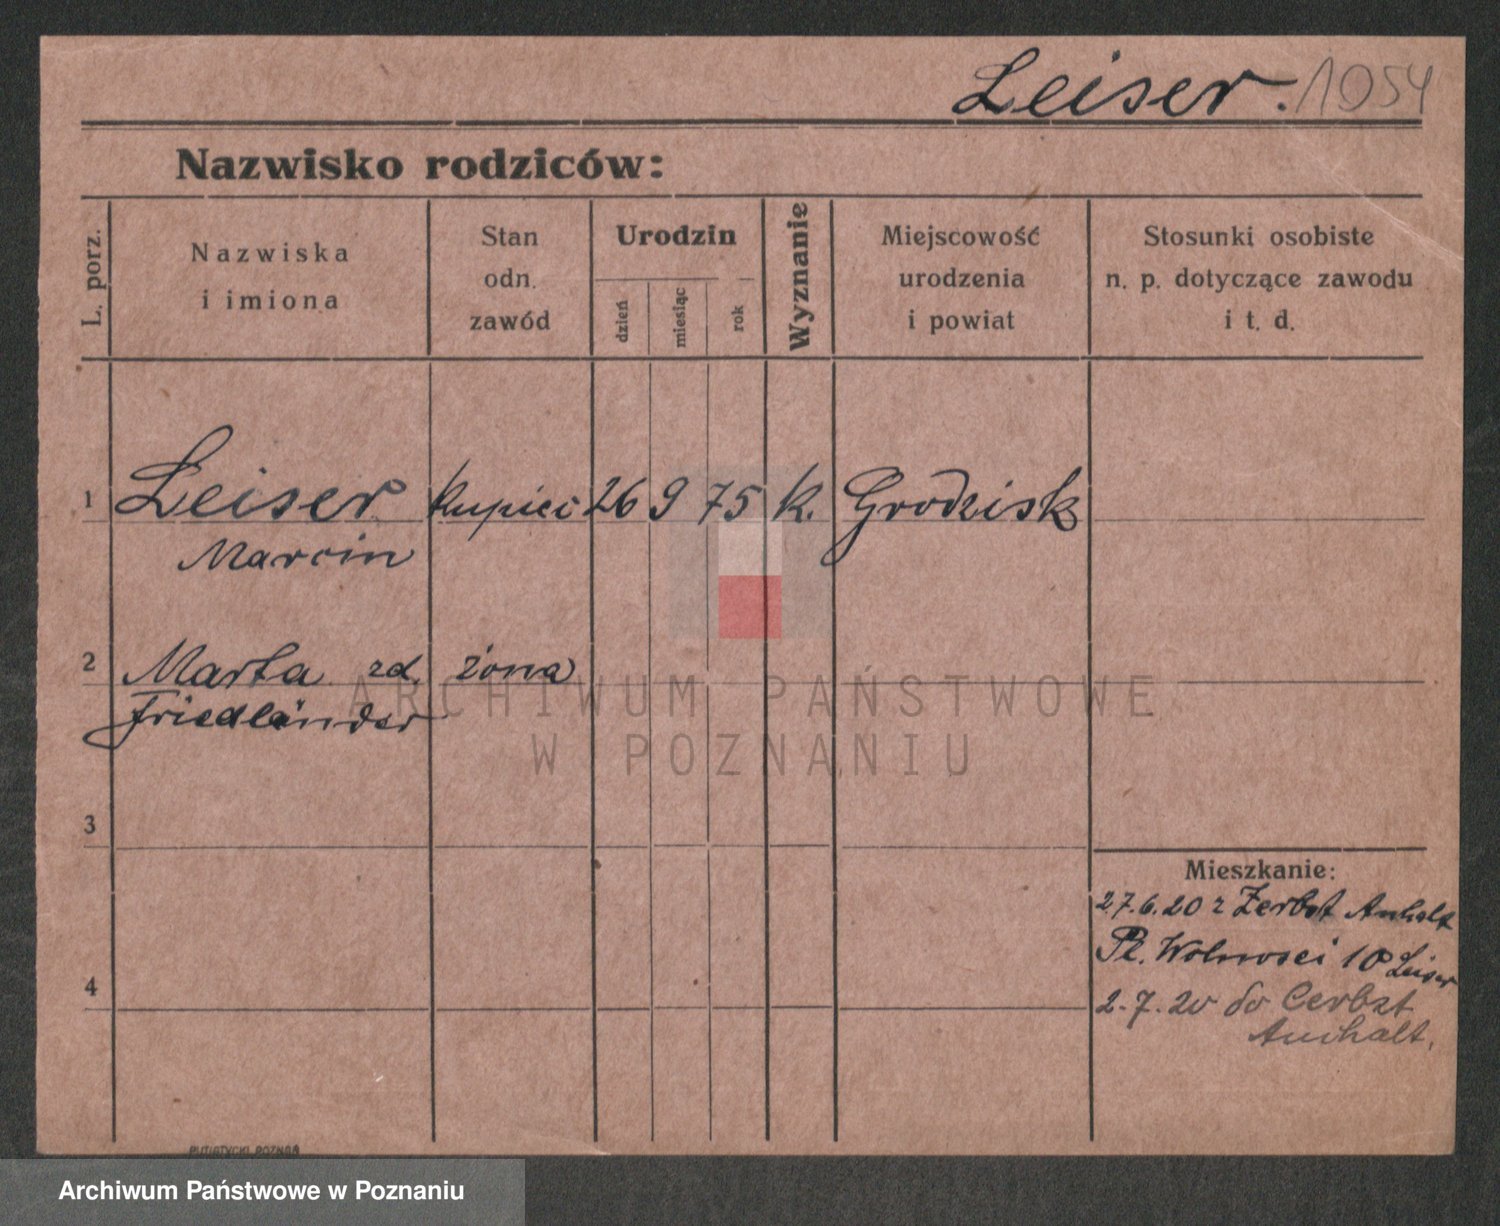 Leiser. 1054
Nazwisko rodziców:
L. porz.
Nazwiska
i imiona
Stan
odn.
zawód
Urodzin
dzień
miesiąc
rok
Wyznanie
Miejscowość
urodzenia
i powiat
Stosunki osobiste
n. p. dotyczące zawodu
i t. d.
1 Leiser kupiec 26 9 75 k. Grodzisk
Marcin
2 Marta zd. żona
Friedländer
ARCHIWUM PAŃSTWOWE
W POZNANIU
3
Mieszkanie:
27.6.20 z Zerbst Anhalt
Pl. Wolnosci 10 Leiser
4
2.7.20 do Cerbst
Anhalt.
PUTIATYCKI, POZNAŃ
Archiwum Państwowe w Poznaniu